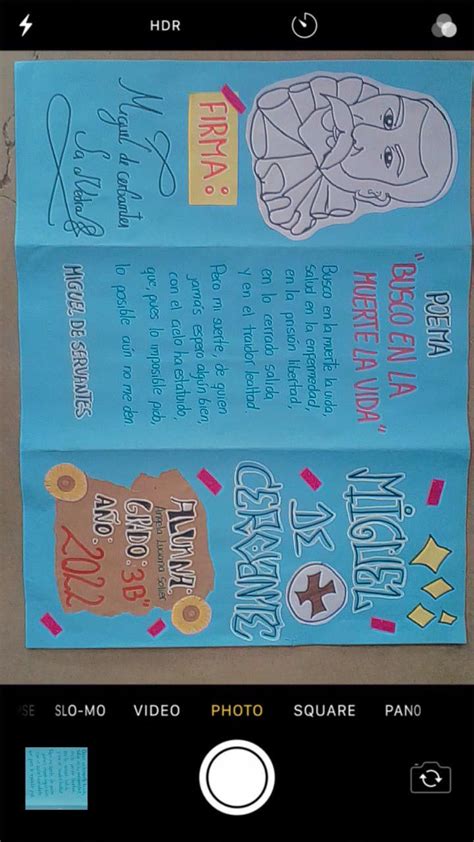 HDR
FIRMA:
Miguel de cerbantes
POEMA
"BUSCO EN LA
MUERTE LA VIDA"
Busco en la muerte la vida,
salud en la enfermedad,
en la prisión libertad,
en lo cerrado salida
y en el traidor lealtad.
Pero mi suerte, de quien
jamás espero algún bien,
con el cielo ha estatuido,
que, pues lo imposible pido,
lo posible aún no me den
MIGUEL DE SERVANTES
MIGUEL
DE
CERVANTE
ALUMNA:
Angela Luciana Soller
GRADO: 3B"
AÑO: 2022
SLO-MO
VIDEO
PHOTO
SQUARE
PANO